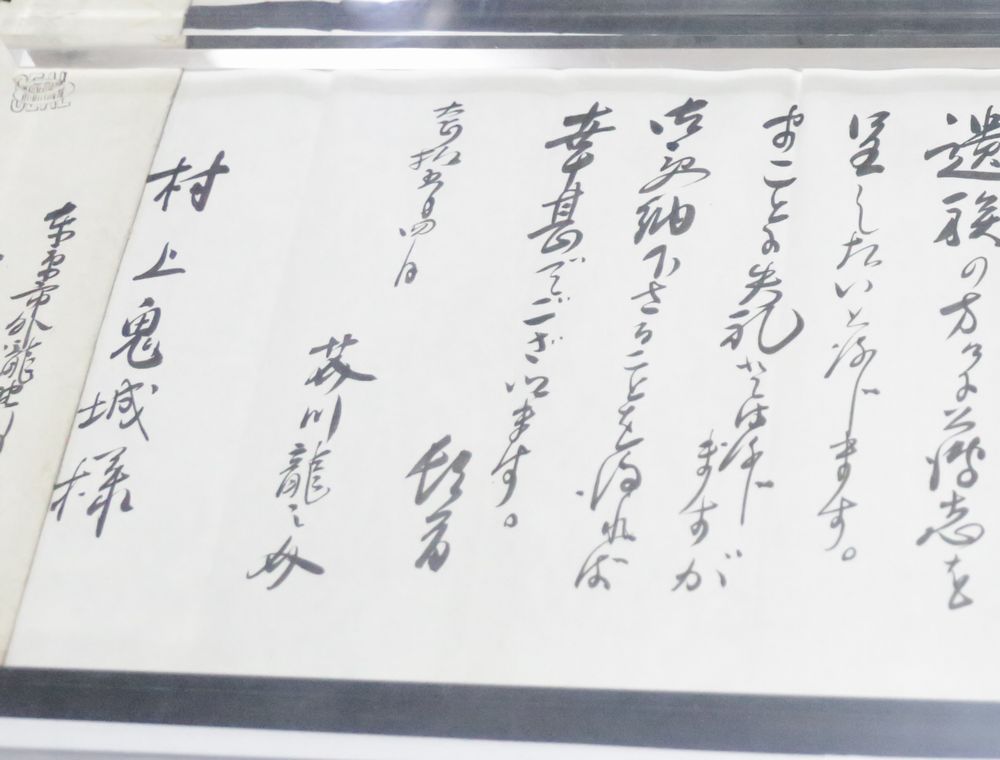 遺族の方々に薄志を
呈したいと存じます。
まことに失礼かとは存じますが
御受納下さることを得れば
幸甚でございます。
頓首
芥川龍之介
村上鬼城様
東京市外